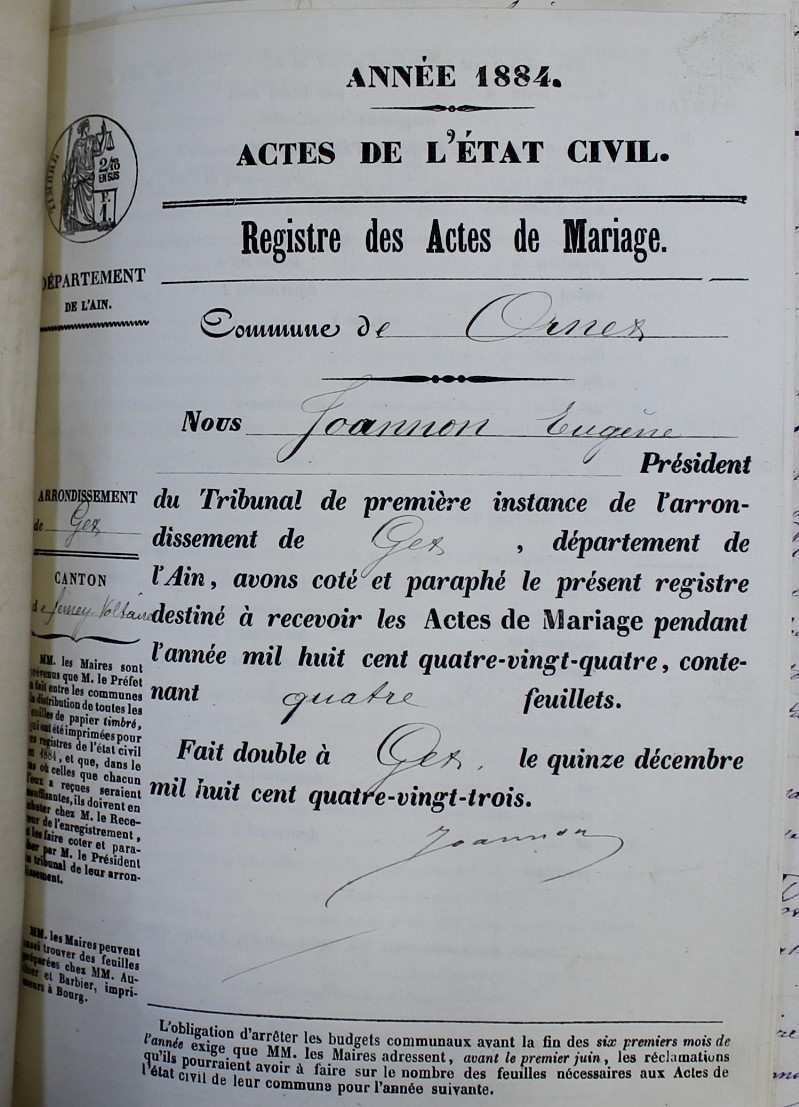 ANNÉE 1884.
ACTES DE L'ÉTAT CIVIL.
Registre des Actes de Mariage.
TIMBRE
2/10
EN SUS
F.
1.
DÉPARTEMENT
DE L'AIN.
Commune de Ornex
Nous Joannon Eugène
Président
du Tribunal de première instance de l'arron-
dissement de Gex, département de
l'Ain, avons coté et paraphé le présent registre
destiné à recevoir les Actes de Mariage pendant
l'année mil huit cent quatre-vingt-quatre, conte-
nant quatre feuillets.
Fait double à Gex, le quinze décembre
mil huit cent quatre-vingt-trois.
Joannon
ARRONDISSEMENT
de Gex
CANTON
de Ferney-Voltaire
MM. les Maires sont
prévenus que M. le Préfet
a fait entre les communes
la distribution de toutes les
feuilles de papier timbré,
qui ont été imprimées pour
les registres de l'état civil
en 1884, et que, dans le
cas où celles que chacun
d'eux a reçues seraient
insuffisantes, ils doivent en
acheter chez M. le Rece-
veur de l'enregistrement,
et les faire coter et para-
pher par M. le Président
du tribunal de leur arron-
dissement.
MM. les Maires peuvent
aussi trouver des feuilles
préparées chez MM. Au-
et Barbier, impri-
meurs à Bourg.
L'obligation d'arrêter les budgets communaux avant la fin des six premiers mois de
l'année exige que MM. les Maires adressent, avant le premier juin, les réclamations
qu'ils pourraient avoir à faire sur le nombre des feuilles nécessaires aux Actes de
l'état civil de leur commune pour l'année suivante.